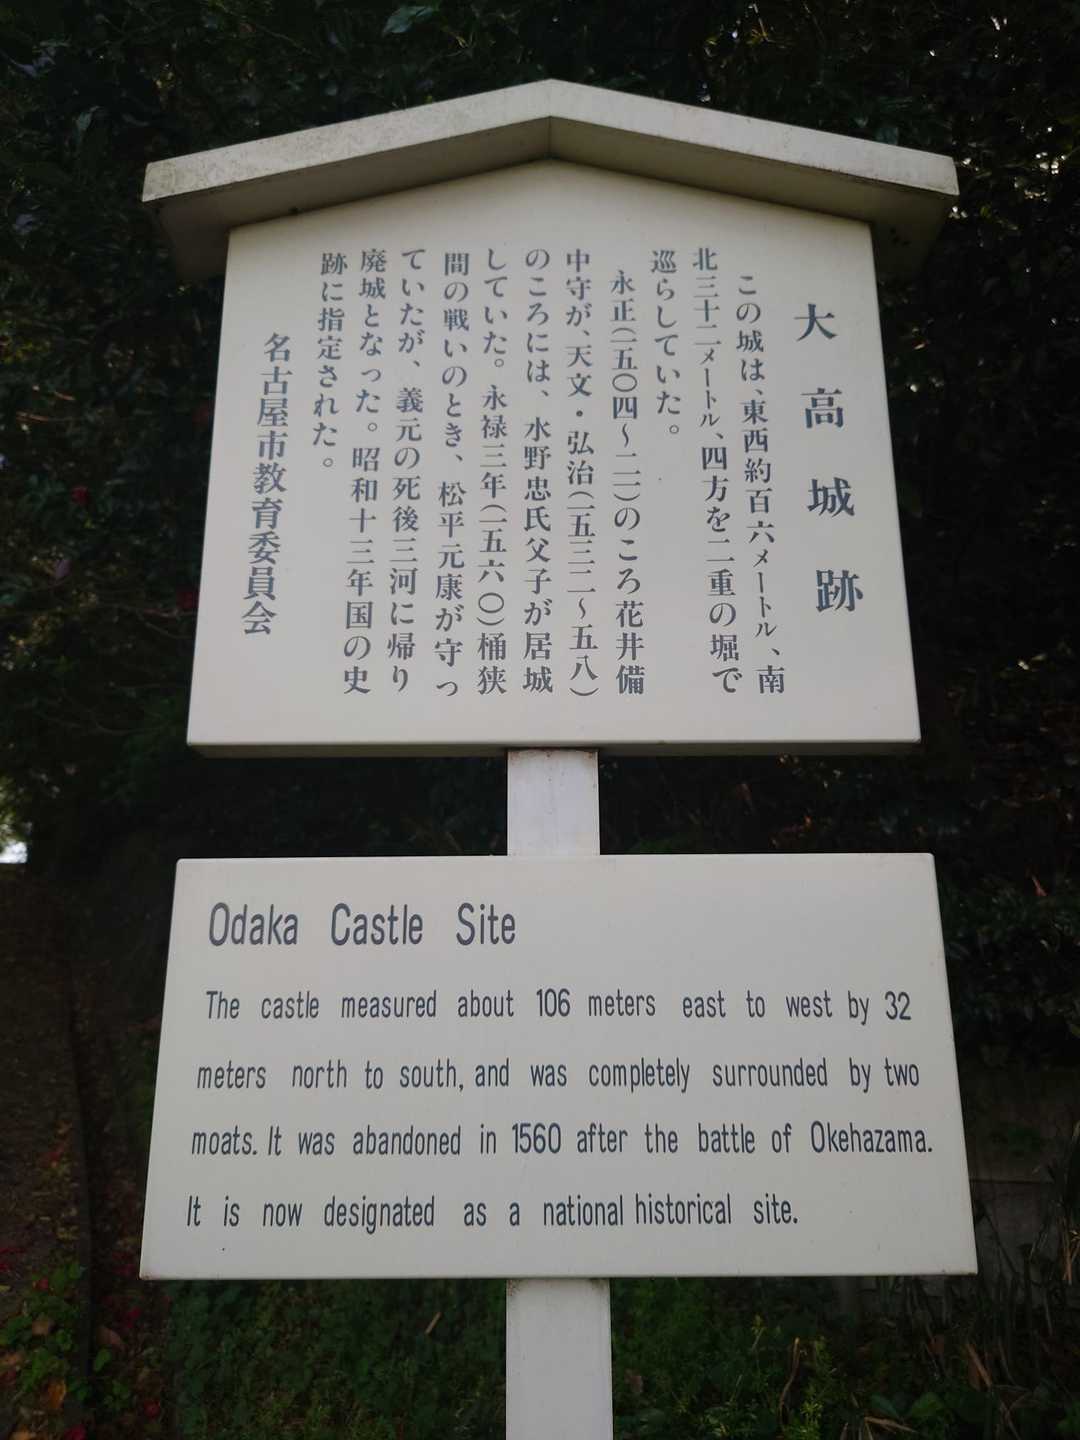 大高城跡
この城は、東西約百六メートル、南
北三十二メートル、四方を二重の堀で
巡らしていた。
永正(一五〇四～二一)のころ花井備
中守が、天文・弘治(一五三二～五八)
のころには、水野忠氏父子が居城
していた。永禄三年(一五六〇)桶狭
間の戦いのとき、松平元康が守っ
ていたが、義元の死後三河に帰り
廃城となった。昭和十三年国の史
跡に指定された。
名古屋市教育委員会
Odaka Castle Site
The castle measured about 106 meters east to west by 32
meters north to south, and was completely surrounded by two
moats. It was abandoned in 1560 after the battle of Okehazama.
It is now designated as a national historical site.